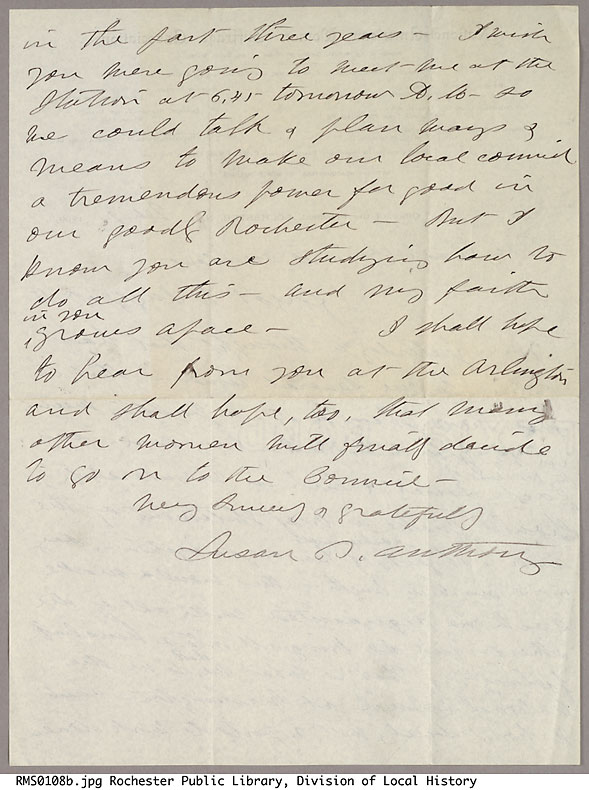 in the past three years – I wish
you were going to meet me at the
Station at 6,45 tomorrow A. M – so
we could talk & plan ways &
means to make our local council
a tremendous power for good in
our good Rochester – But I
know you are studying how to
do all this – and my faith
in you
grows apace – I shall hope
to hear from you at the Arlington
and shall hope, too, that many
other women will finally decide
to go on to the Council –
Very Sincerely & gratefully
Susan B. Anthony
RMS0108b.jpg Rochester Public Library, Division of Local History